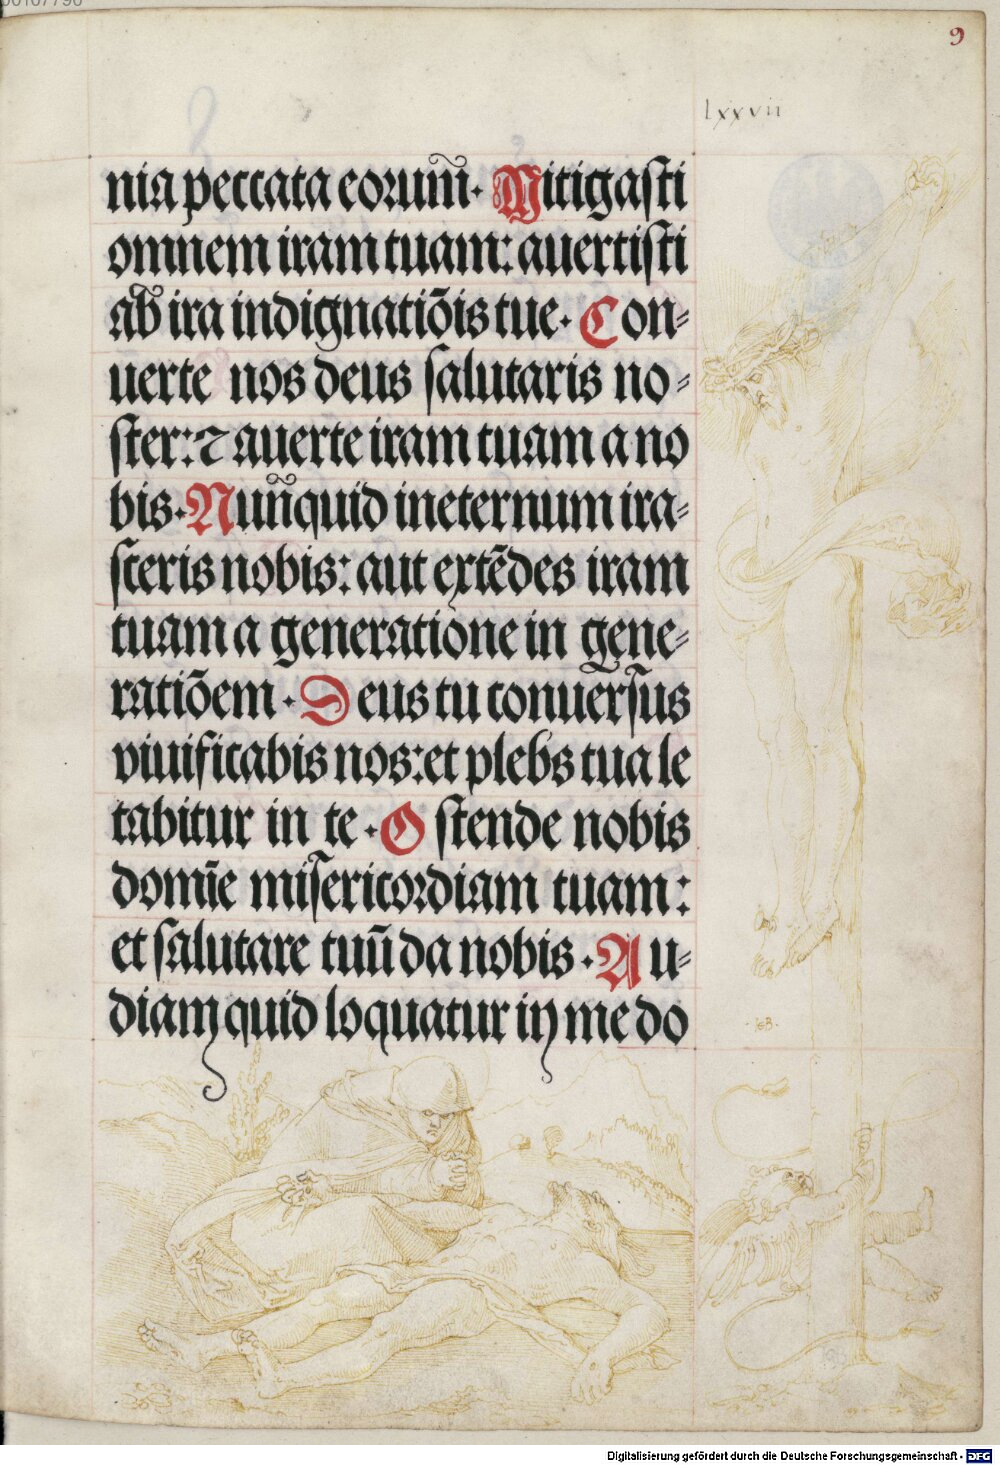 00107790
9
lxxvii
nia peccata eorum̃. Mitigasti
omnem iram tuam: auertisti
ab ira indignatiõis tue. Con⸗
uerte nos deus salutaris no⸗
ster: ⁊ auerte iram tuam a no
bis. Nun̄quid in eternum ira⸗
sceris nobis: aut extẽdes iram
tuam a generatione in gene⸗
ratiõem. Deus tu conuersus
viuificabis nos: et plebs tua le
tabitur in te. Ostende nobis
domīe misericordiam tuam:
et salutare tuū da nobis. Au⸗
diam quid loquatur in me do
Digitalisierung gefördert durch die Deutsche Forschungsgemeinschaft - DFG